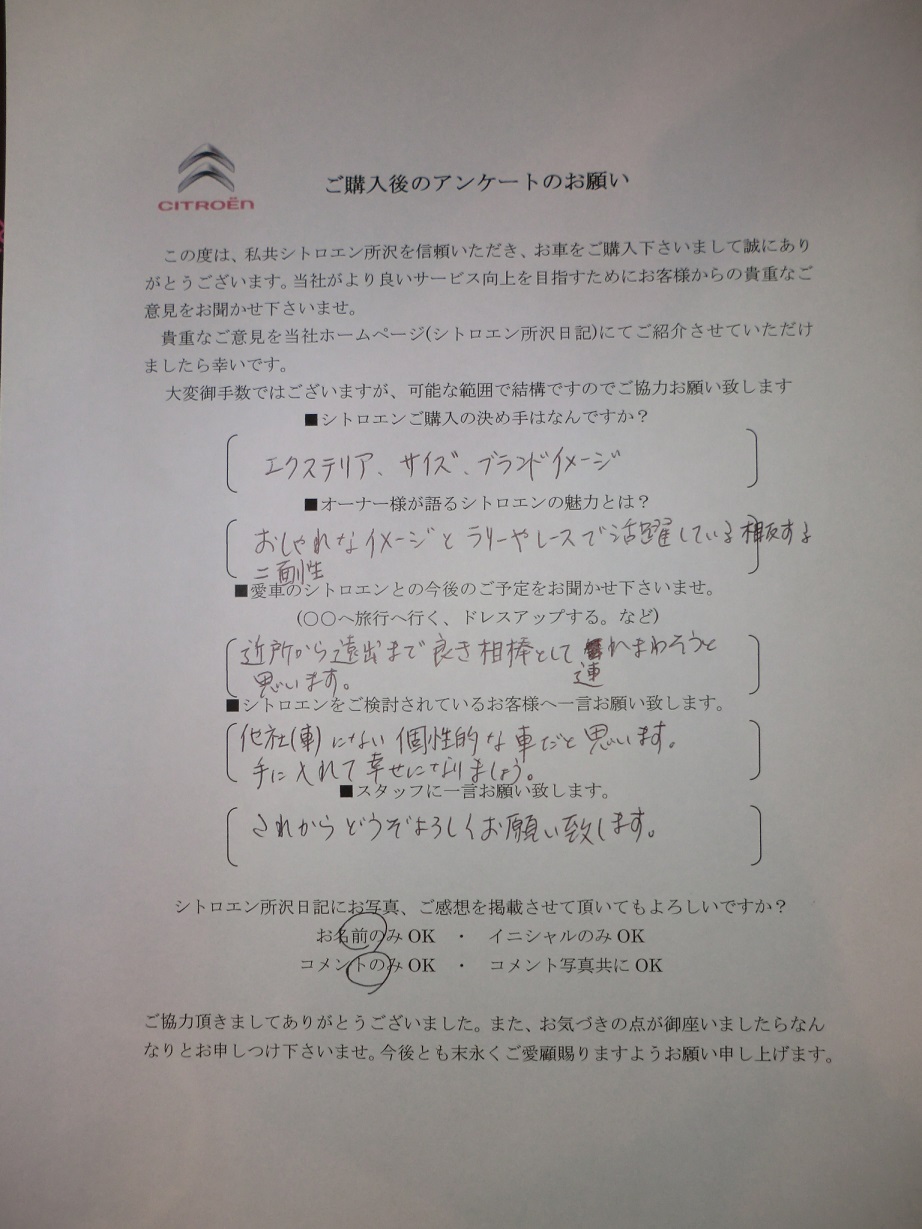 CITROËN
ご購入後のアンケートのお願い
この度は、私共シトロエン所沢を信頼いただき、お車をご購入下さいまして誠にあり
がとうございます。当社がより良いサービス向上を目指すためにお客様からの貴重なご
意見をお聞かせ下さいませ。
貴重なご意見を当社ホームページ(シトロエン所沢日記)にてご紹介させていただけ
ましたら幸いです。
大変御手数ではございますが、可能な範囲で結構ですのでご協力お願い致します
■シトロエンご購入の決め手はなんですか？
エクステリア、サイズ、ブランドイメージ
■オーナー様が語るシトロエンの魅力とは？
おしゃれなイメージとラリーやレースで活躍している相反する
二面性
■愛車のシトロエンとの今後のご予定をお聞かせ下さいませ。
(○○へ旅行へ行く、ドレスアップする。など)
近所から遠出まで良き相棒として連れまわろうと
思います。
■シトロエンをご検討されているお客様へ一言お願い致します。
他社(車)にない個性的な車だと思います。
手に入れて幸せになりましょう。
■スタッフに一言お願い致します。
されからどうぞよろしくお願い致します。
シトロエン所沢日記にお写真、ご感想を掲載させて頂いてもよろしいですか？
お名前のみ OK ・ イニシャルのみ OK
コメントのみ OK ・ コメント写真共に OK
ご協力頂きましてありがとうございました。また、お気づきの点が御座いましたらなん
なりとお申しつけ下さいませ。今後とも末永くご愛顧賜りますようお願い申し上げます。